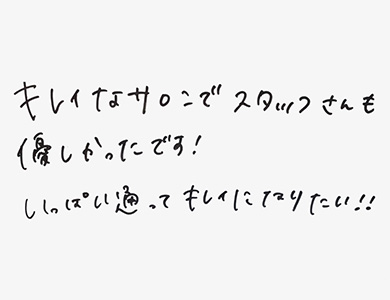 キレイなサロンでスタッフさんも
優しかったです!
いっぱい通ってキレイになりたい!!